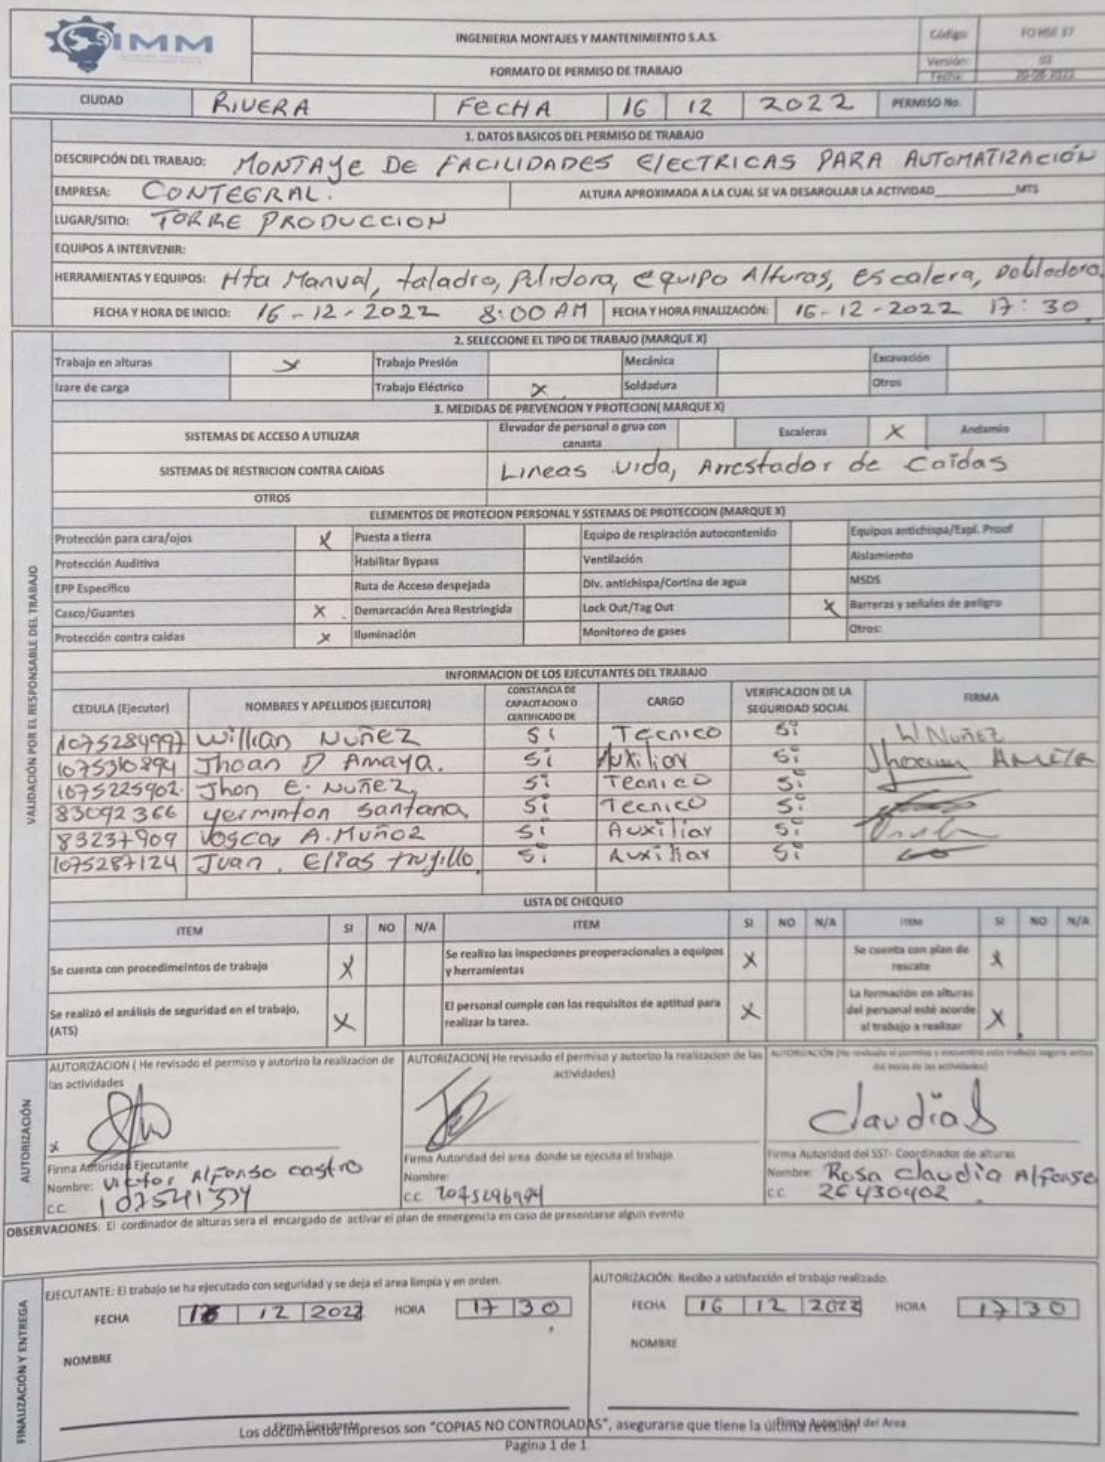 IMM
INGENIERIA MONTAJES Y MANTENIMIENTO S.A.S.
Código: FO HSE 37
FORMATO DE PERMISO DE TRABAJO
Versión: 02
Fecha: 20-08-2022
CIUDAD RIVERA FecHA 16 12 2022 PERMISO No.
1. DATOS BASICOS DEL PERMISO DE TRABAJO
DESCRIPCIÓN DEL TRABAJO: MONTAJE DE FACILIDADES ElECTRICAS PARA AUTOMATIZACIÓN
EMPRESA: CONTEGRAL. ALTURA APROXIMADA A LA CUAL SE VA DESAROLLAR LA ACTIVIDAD MTS
LUGAR/SITIO: TORRE PRODUCCION
EQUIPOS A INTERVENIR:
HERRAMIENTAS Y EQUIPOS: Hta Manual, taladro, Pulidora, equipo Alturas, escalera, Dobladora,
FECHA Y HORA DE INICIO: 16-12-2022 8:00 AM FECHA Y HORA FINALIZACIÓN: 16-12-2022 17:30
2. SELECCIONE EL TIPO DE TRABAJO (MARQUE X)
Trabajo en alturas X Trabajo Presión Mecánica Excavación
Izare de carga Trabajo Eléctrico X Soldadura Otros
3. MEDIDAS DE PREVENCION Y PROTECION( MARQUE X)
SISTEMAS DE ACCESO A UTILIZAR Elevador de personal o grua con canasta Escaleras X Andamio
SISTEMAS DE RESTRICION CONTRA CAIDAS Lineas vida, Arrestador de Caidas
OTROS
ELEMENTOS DE PROTECION PERSONAL Y SSTEMAS DE PROTECCION (MARQUE X)
Protección para cara/ojos X Puesta a tierra Equipo de respiración autocontenido Equipos antichispa/Expl. Proof
Protección Auditiva Habilitar Bypass Ventilación Aislamiento
EPP Especifico Ruta de Acceso despejada Div. antichispa/Cortina de agua MSDS
Casco/Guantes X Demarcación Area Restringida Lock Out/Tag Out X Barreras y señales de peligro
Protección contra caidas X Iluminación Monitoreo de gases Otros:
INFORMACION DE LOS EJECUTANTES DEL TRABAJO
CEDULA (Ejecutor) NOMBRES Y APELLIDOS (EJECUTOR) CONSTANCIA DE CAPACITACION O CERTIFICADO DE CARGO VERIFICACION DE LA SEGURIDAD SOCIAL FIRMA
1075284997 Willian NuñeZ Si Tecnico Si W Nuñez
1075310894 Jhoan D Amaya. Si Auxiliar Si Jhoan AMAYA
1075225902. Jhon E. NuñeZ Si Tecnico Si
83092366 yerminton Santana Si Tecnico Si
83237909 Voscar A. Muñoz Si Auxiliar Si
1075287124 Juan. Elias trujillo Si Auxiliar Si
LISTA DE CHEQUEO
ITEM SI NO N/A ITEM SI NO N/A ITEM SI NO N/A
Se cuenta con procedimeintos de trabajo X Se realizo las inspeciones preoperacionales a equipos y herramientas X Se cuenta con plan de rescate X
Se realizó el análisis de seguridad en el trabajo, (ATS) X El personal cumple con los requisitos de aptitud para realizar la tarea. X La formación en alturas del personal esté acorde al trabajo a realizar X
AUTORIZACIÓN ( He revisado el permiso y autorizo la realizacion de las actividades
AUTORIZACION( He revisado el permiso y autorizo la realizacion de las actividades)
Claudia
X
Firma Autoridad Ejecutante
Nombre: Victor Alfonso castro
CC
Firma Autoridad del area donde se ejecuta el trabajo
Nombre:
CC
Firma Autoridad del SST- Coordinador de alturas
Nombre: Rosa Claudia Alfonso
CC 26430402
OBSERVACIONES: El cordinador de alturas sera el encargado de activar el plan de emergencia en caso de presentarse algun evento
EJECUTANTE: El trabajo se ha ejecutado con seguridad y se deja el area limpia y en orden.
FECHA 16 12 2022 HORA 17 30
NOMBRE
Firma Ejecutante
AUTORIZACIÓN: Recibo a satisfacción el trabajo realizado.
FECHA 16 12 2022 HORA 17 30
NOMBRE
Firma Autoridad del Area
Los documentos impresos son "COPIAS NO CONTROLADAS", asegurarse que tiene la última revisión
Pagina 1 de 1
VALIDACIÓN POR EL RESPONSABLE DEL TRABAJO
AUTORIZACIÓN
FINALIZACIÓN Y ENTREGA